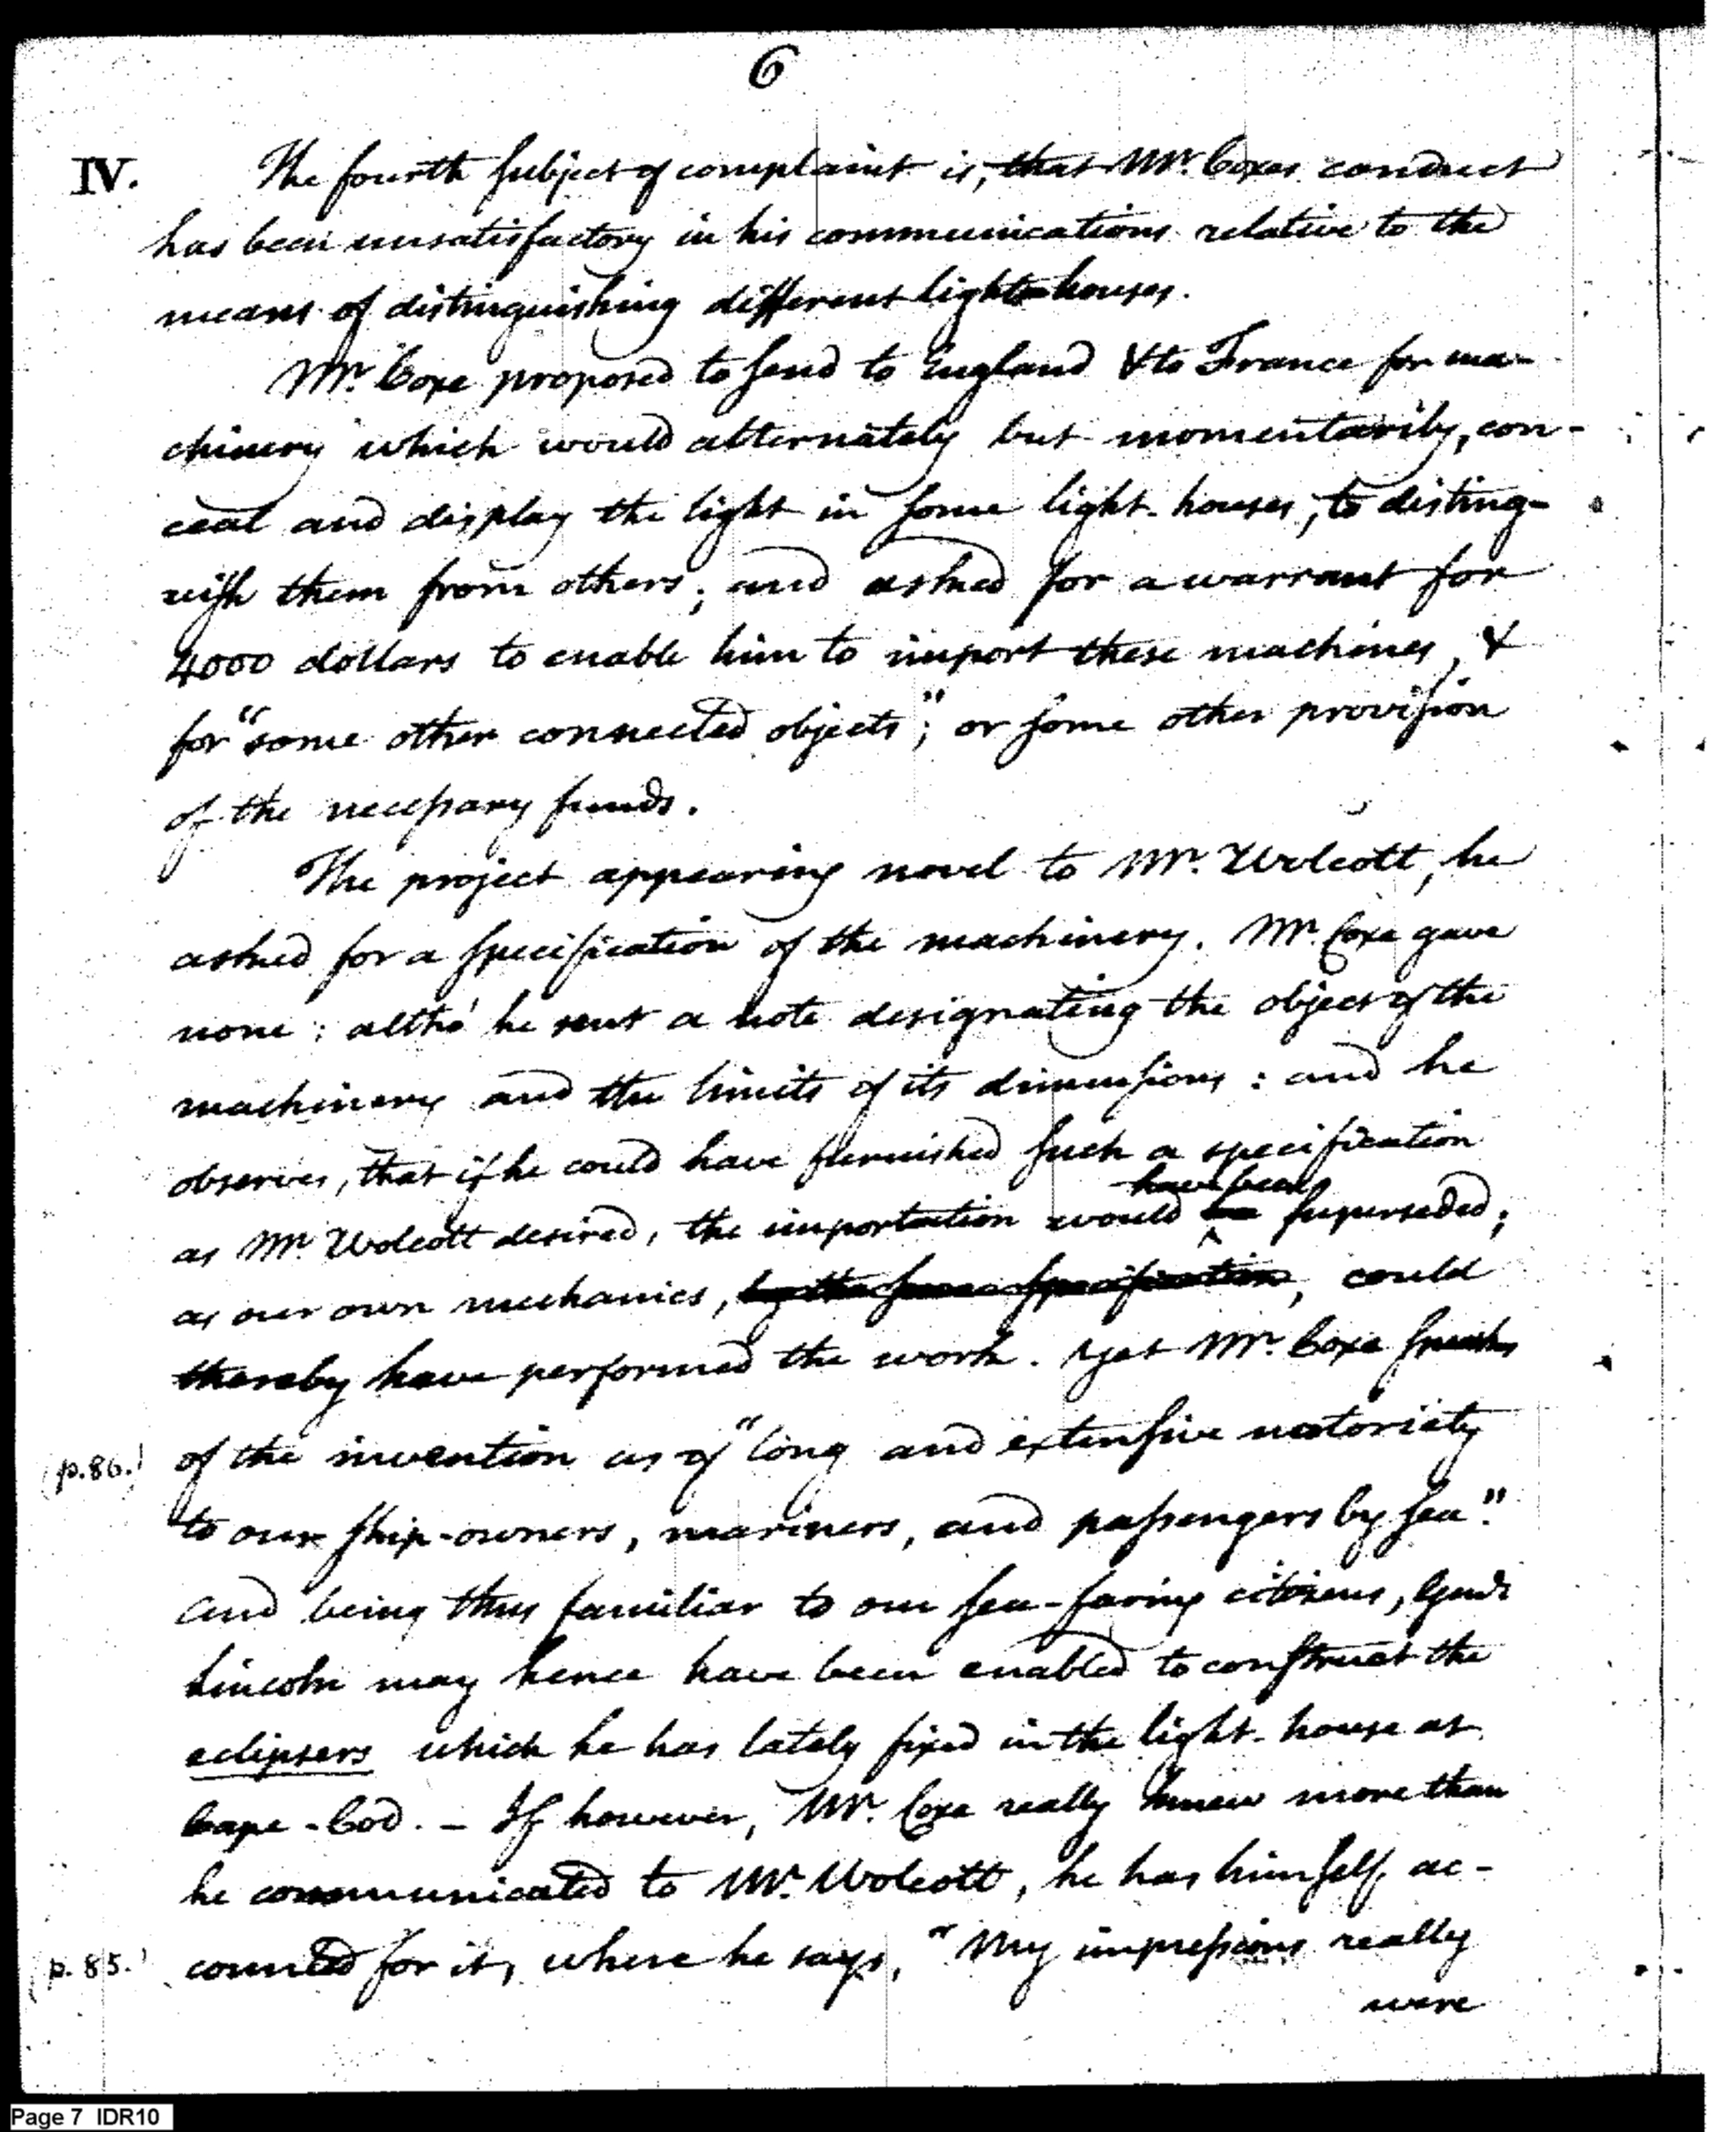 6
IV. The fourth subject of complaint is, that Mr. Coxes conduct
has been unsatisfactory in his communications relative to the
means of distinguishing different light-houses.
Mr. Coxe proposed to send to England & to France for ma-
chinery which would alternately but momentarily, con-
ceal and display the light in some light-houses, to disting-
uish them from others; and asked for a warrant for
4000 dollars to enable him to import these machines, &
for "some other connected objects"; or some other provision
of the necessary funds.
The project appearing novel to Mr. Wolcott, he
asked for a specification of the machinery. Mr. Coxe gave
none: altho' he sent a note designating the object of the
machinery and the limits of its dimensions: and he
observes, that if he could have furnished such a specification
have been
as Mr. Wolcott desired, the importation would be superseded;
as our own mechanics, by the same specification, could
thereby have performed the work. Yet Mr. Coxe speaks
(p. 86.) of the invention as of "long and extensive notoriety
to our ship-owners, mariners, and passengers by sea."
And being thus familiar to our sea-faring citizens, Genl.
Lincoln may hence have been enabled to construct the
eclipsers which he has lately fixed in the light-house at
Cape-Cod. - If however, Mr. Coxe really knew more than
he communicated to Mr. Wolcott, he has himself ac-
(p. 85.) counted for it, where he says, "My impressions really
were
Page 7 IDR10